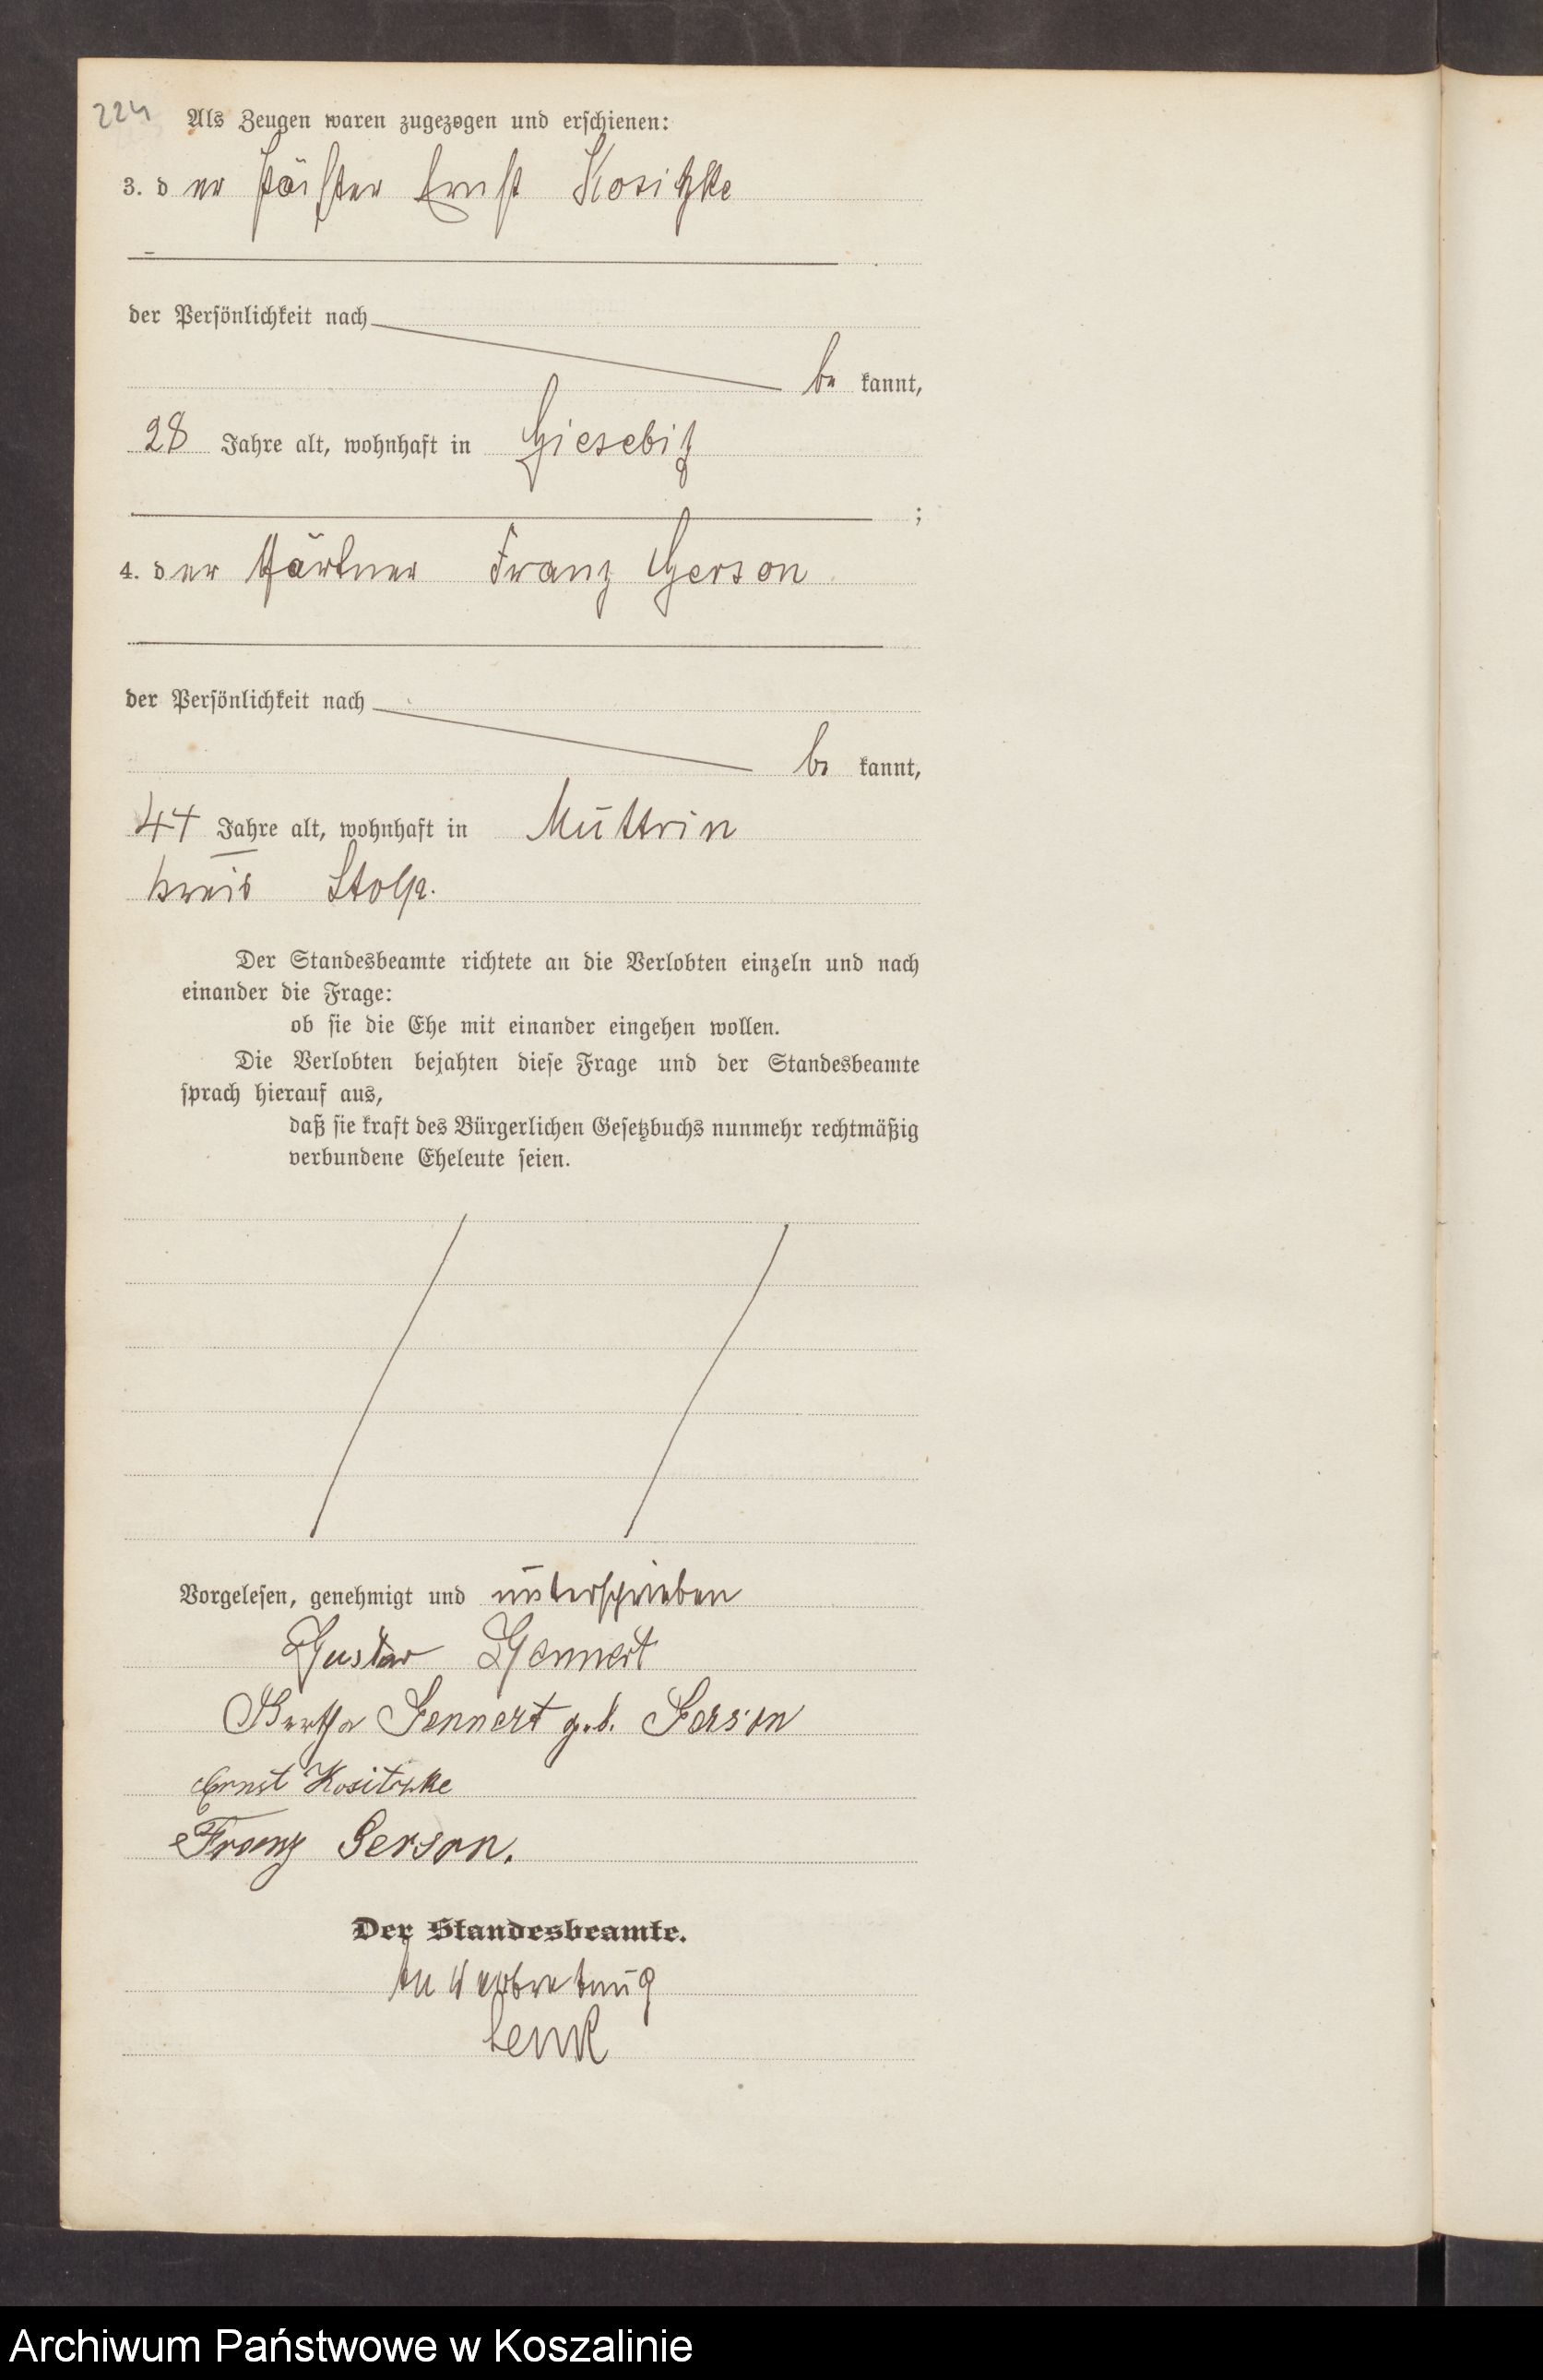 224
Als Zeugen waren zugezogen und erschienen:
3. der Pächter Ernst Kositzke
der Persönlichkeit nach
be kannt,
28 Jahre alt, wohnhaft in Giesebitz
;
4. der Gärtner Franz Gerson
der Persönlichkeit nach
be kannt,
44 Jahre alt, wohnhaft in Muttrin
Kreis Stolp.
Der Standesbeamte richtete an die Verlobten einzeln und nach
einander die Frage:
ob sie die Ehe mit einander eingehen wollen.
Die Verlobten bejahten diese Frage und der Standesbeamte
sprach hierauf aus,
daß sie kraft des Bürgerlichen Gesetzbuchs nunmehr rechtmäßig
verbundene Eheleute seien.
Vorgelesen, genehmigt und unterschrieben
Gustav Gennert
Bertha Gennert geb. Gerson
Ernst Kositzke
Franz Gerson.
Der Standesbeamte.
In Vertretung
Lenk
Archiwum Państwowe w Koszalinie